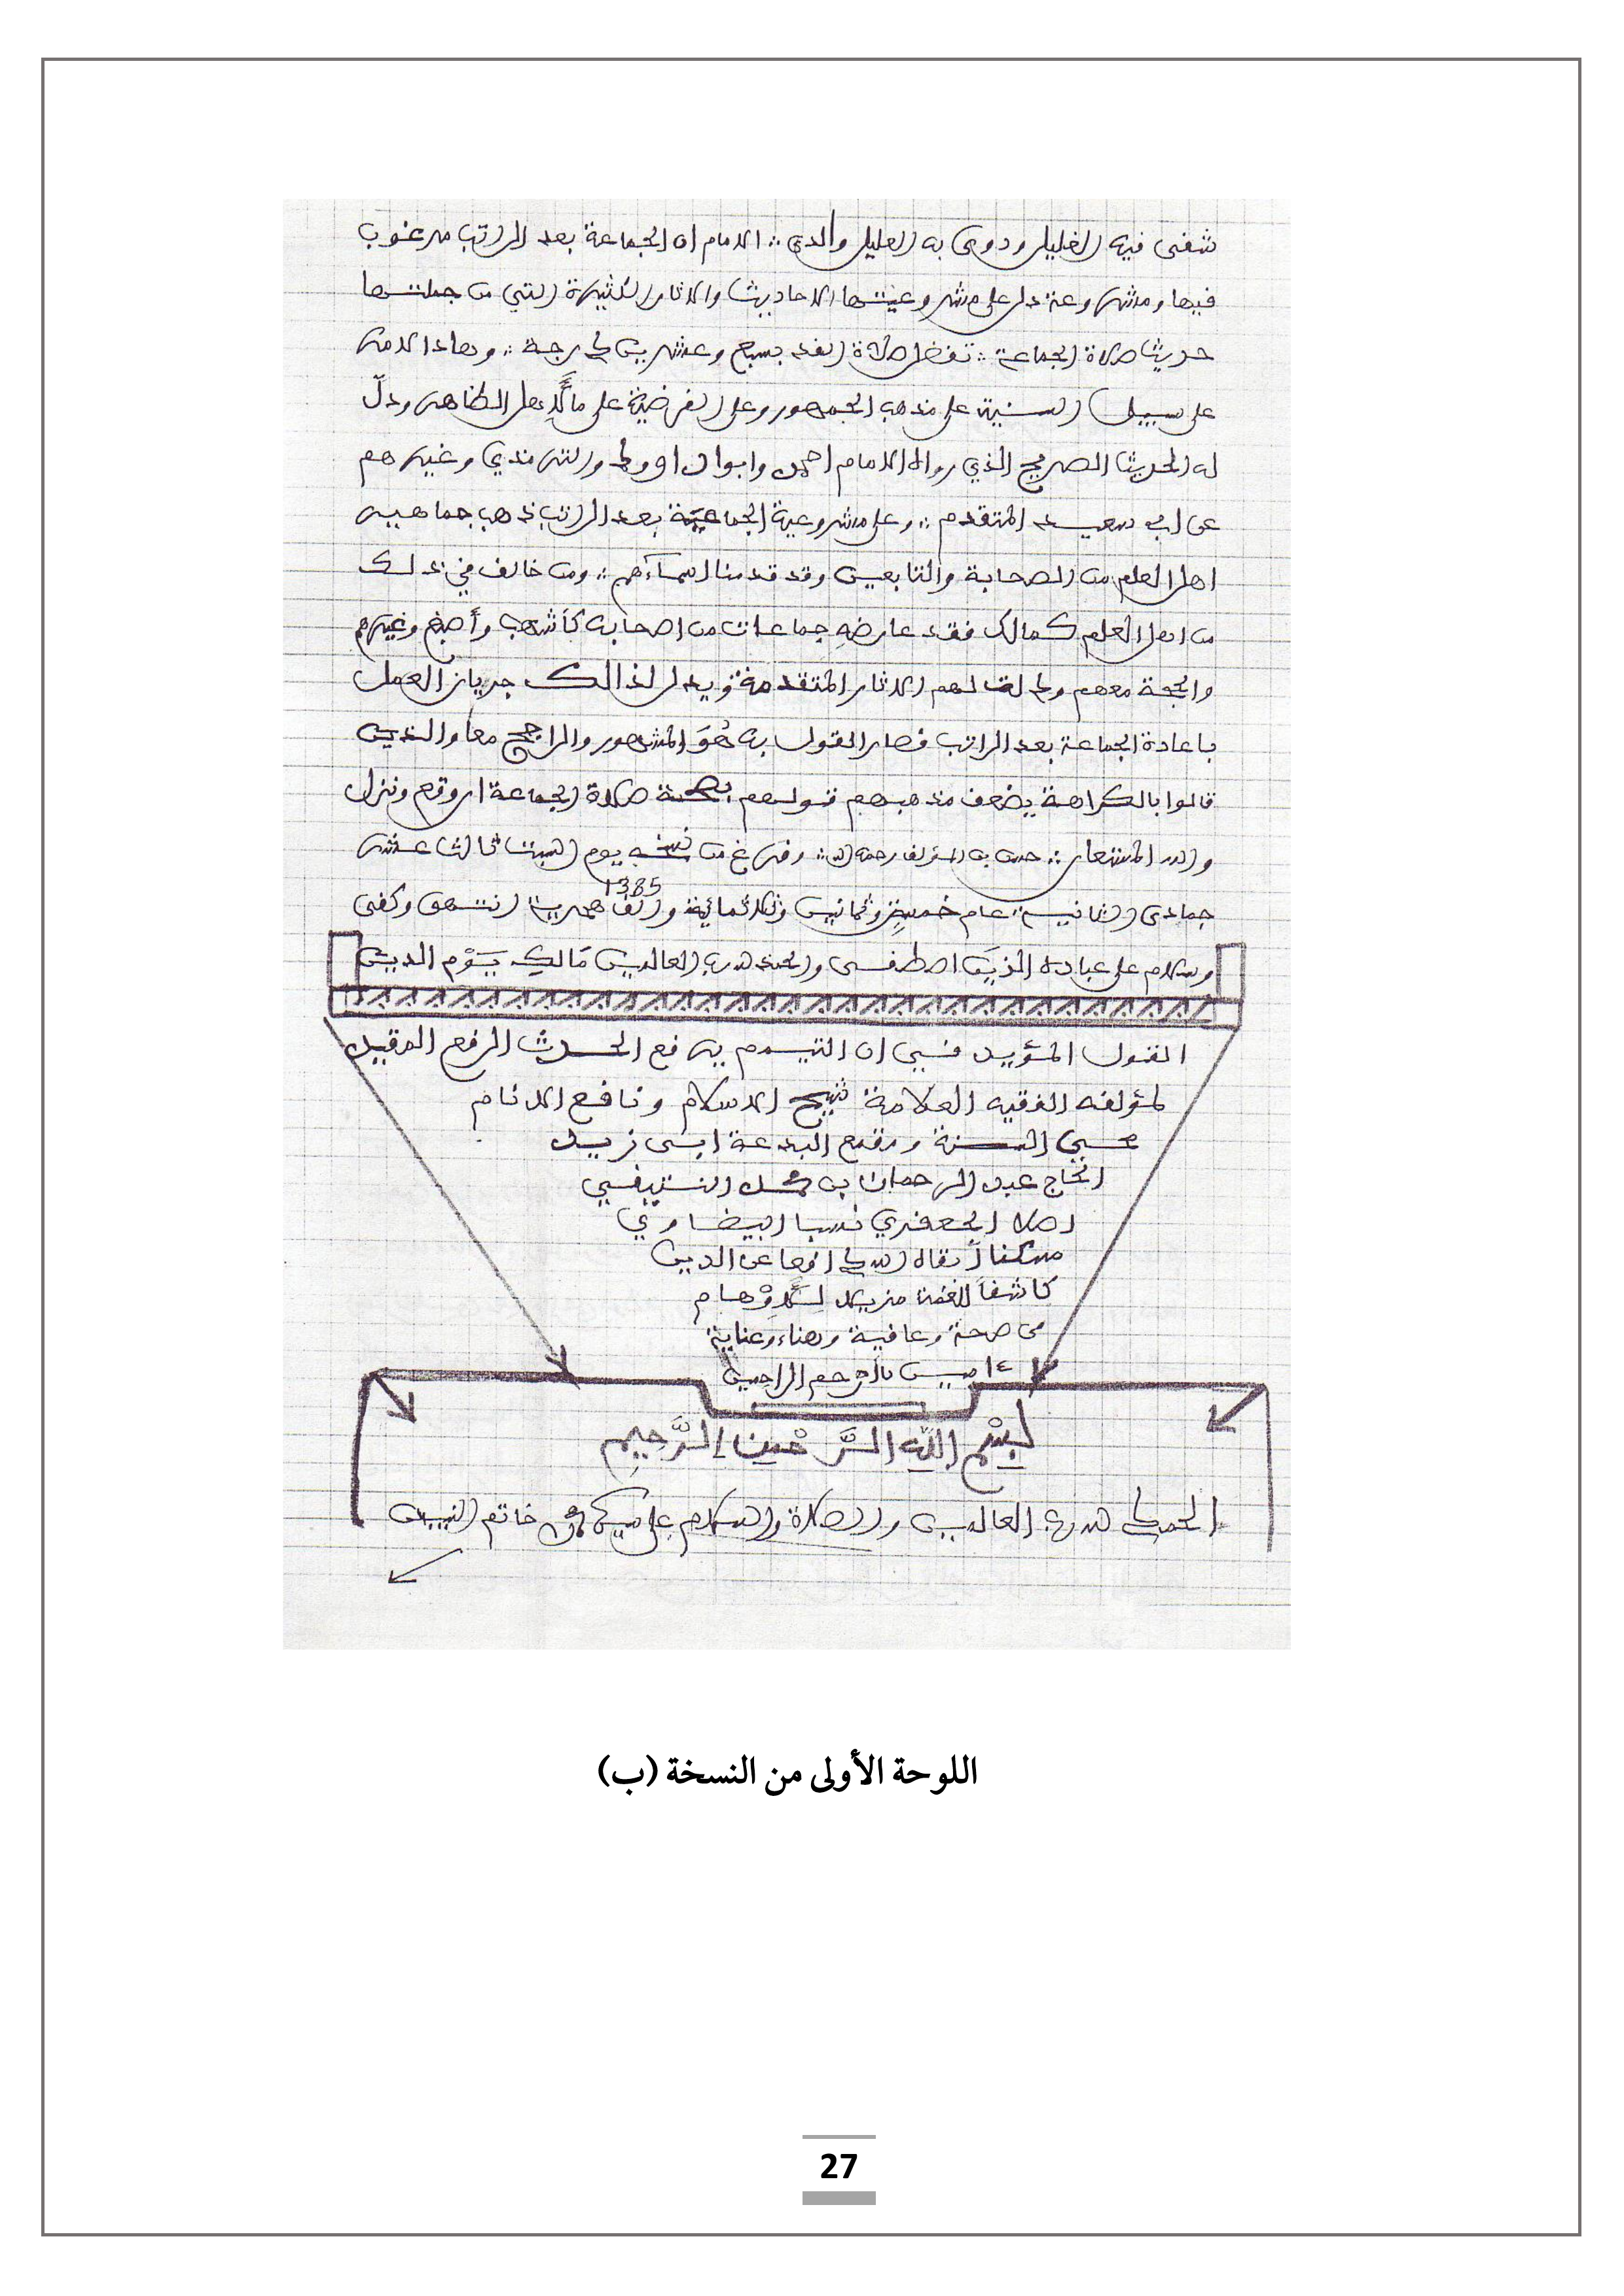 شفى فيه الغليل ودوى به العليل والدي ∴ الامام ان الجماعة بعد الراتب مرغوب
فيها ومشروعة دل على مشروعيتها الاحاديث والاثار الكثيرة التي من جملتها
حديث صلاة الجماعة ∴ تفضل صلاة الفذ بسبع وعشرين درجة ∴ وهاذا الامر
على سبيل السنية على مذهب الجمهور وعلى الفرضية على ما لأهل الظاهر ودلّ
له الحديث الصريح الذي رواه الامام احمد وابوا داوود والترمذي وغيرهم
عن ابي سعيد المتقدم ∴ وعلى مشروعية الجماعة بعد الراتب ذهب جماهير
اهل العلم من الصحابة والتابعين وقد قدمنا اسمآءهم ∴ ومن خالف في ذلك
من اهل العلم كمالك فقد عارضه جماعات من اصحابه كأشهب وأصبغ وغيرهم
والحجة معهم ودلت لهم الاثار المتقدمة ويدل لذالك جريان العمل
باعادة الجماعة بعد الراتب فصار القول به هُوَ المشهور والراجح معا والذين
قالوا بالكراهة يضعف مذهبهم قولهم بصحة صلاة الجماعة ان وقع ونزل
والله المستعان ∴ حسابه المؤلف رحمه الله ∴ وفرغ من نسخه يوم السبت ثالث عشر
1385
جمادى الثانية عام خمسةٍ وثمانين وثلاثمائة والف هجرية انتهى وكفى
وسلام على عباده الذينَ اصطفى والحمد لله رب العالمين مَالكِ يَوْم الدين
القول المؤيد في ان التيمم يرفع الحدث الرفع المقيد
لمؤلفه الفقيه العلامة شيخ الاسلام ونافع الانام
محيي السنة وقامع البدعة ابى زيد
الحاج عبد الرحمان بن محمد النتيفي
اصلا الجعفري نسبا البيضاوي
مسكنا أبقاه الله مدافعا عن الدين
كاشفاً للغمة مزيلا للأوْهام
في صحة وعافية وهناء وعناية
ءامين ياأرحم الراحمين
بِسْمِ اللَّهِ الرَّحْمنِ الرَّحِيمِ
الحمد لله رب العالمين والصلاة والسلام على سيدنا محمد خاتم النبيين
اللوحة الأولى من النسخة (ب)
27